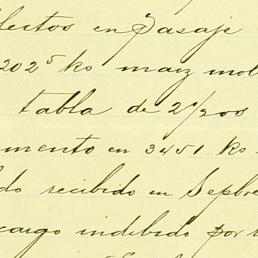 efectos en Pasaje
2025 ks maiz mol
tabla de 2ª/200
mento en 3451 ks
do recibido en Sepbre
cargo indebido por